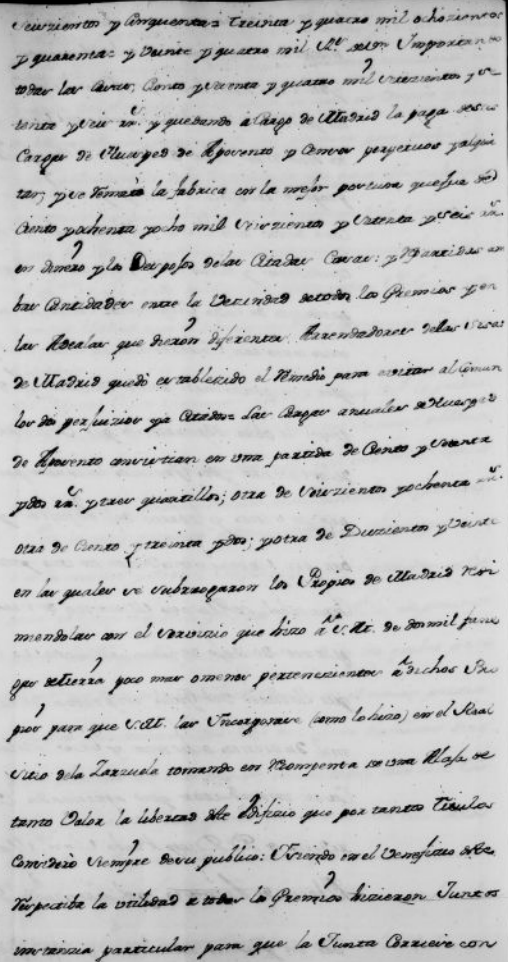 Seiszientos y Cinquenta = treinta y quatro mil ochozientos
y quarenta = y Veinte y quatro mil Rs. de vn. Importan
todas las Casas, Ciento y setenta y quatro mil seiszientos y se
tenta y seis rs. y quedando a Cargo de Madrid la paga de
Cargas de Huesped de Aposento y Censos perpetuos y al qui
tar; y se tomaria la fabrica con la mejor postura que fue de
Ciento y ochenta y ocho mil seiszientos y setenta y seis rs.
en dinero y los Despojos de las Citadas Casas: y Repartidas am
bas Cantidades entre la Vezindad de todos los Gremios y en
las Adealas que dieron diferentes Arrendadores de las Sisas
de Madrid quedó establezido el Remedio para evitar al Comun
los dos perjuizios ya Citados = Las Cargas anuales de Huesped
de Aposento consistian en una partida de Ciento y setenta
y dos rs. y tres quartillos; otra de seiszientos y ochenta rs.
otra de Ciento y treinta y dos; y otra de Duzientos y Veinte
en las quales se subrrogaron los Propios de Madrid Redi
miendolas con el servizio que hizo a S. M. de dos mil fane
gas de tierra poco mas o menos pertenezientes a dichos Pro
pios para que S. M. las Incorporase (como lo hizo) en el Real
Sitio de la Zarzuela tomando en Recompensa de una Alaja de
tanto Valor la libertad del Edifizio que por tantos Titulos
Consideró siempre de su publico: Y siendo en el Venefizio
Respectiba la utilidad a todos los Gremios hizieron Juntos
instanzia particular para que la Junta Corriese con